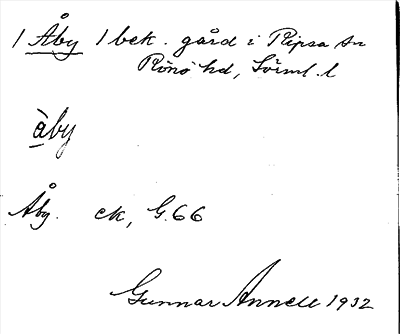 1 Åby 1 bek. gård i Ripsa sn
Rönö hd, Sörml. l
àby
Åby. ek, G. 66
Gunnar Annell 1932